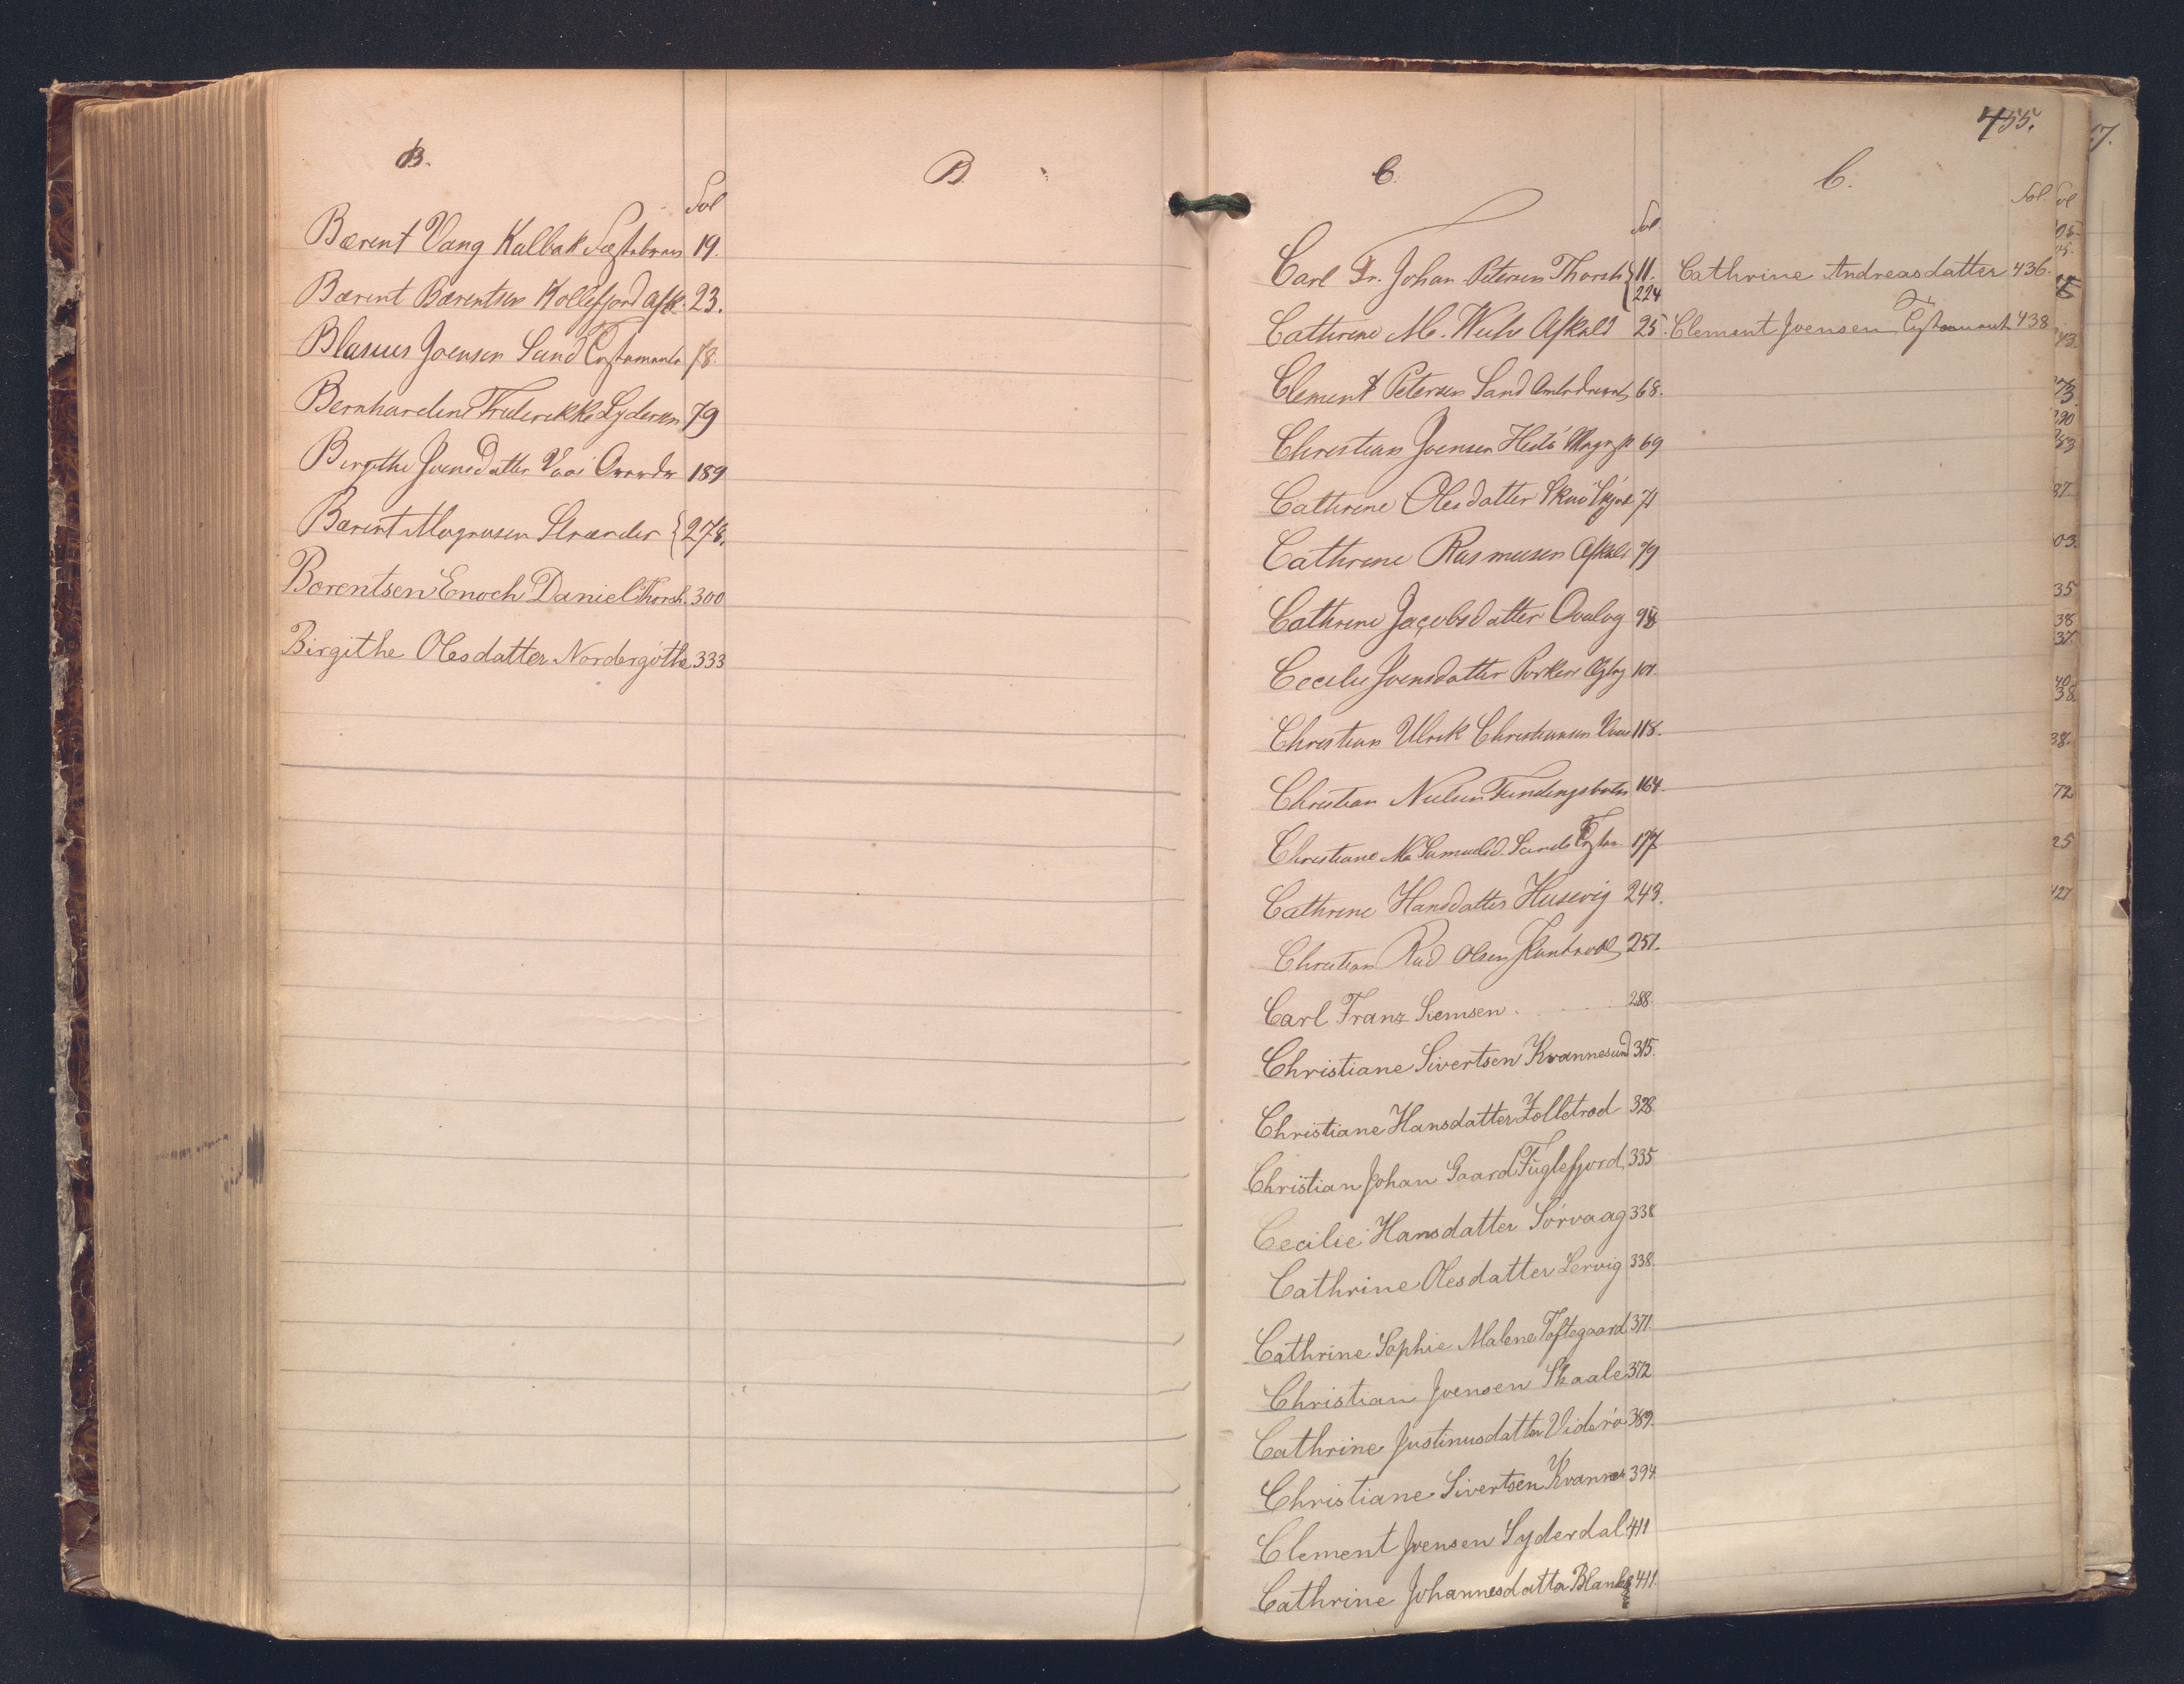 B.
Fol
Bærent Vang Kalbak 19.
Bærent Bærentsen Kollefjord Afk. 23.
Blasius Joensen Sand Testamente 78.
Bernhardine Frederikke Lydersen 79
Birgithe Joensdatter Vaai 189
Bærent Magnusen Strænder { 278.
Berentsen Enoch Daniel Thorsh. 300
Birgithe Olesdatter Nordergöthe 333
B.
455.
C.
Fol.
Carl Fr. Johan Petersen Thorsh { 11.
224
Cathrine M. Weihe Afkald 25.
Clement Petersen Sand 68.
Christian Joensen Hestö 69
Cathrine Olesdatter Skuö 71
Cathrine Rasmusen Afkald 79
Cathrine Jacobsdatter Qvalvig 98
Cecilie Joensdatter Porkere 101.
Christian Ulrik Christiansen 118.
Christian Nielsen Fundingsbotn 164.
Christiane M. Samuelsd. Sand 177
Cathrine Hansdatter Husevig 243.
Christian Rud Olsen 251.
Carl Franz Siemsen . . . . 288.
Christiane Sivertsen Kvannesund 315.
Christiane Hansdatter Zolletrød 328.
Christian Johan Gaard Fuglefjord 335
Cecilie Hansdatter Sörvaag 338
Cathrine Olesdatter Lervig 338.
Cathrine Sophie Malene Toftegaard 371.
Christian Joensen Skaale 372
Cathrine Justinusdatter Viderö 389.
Christiane Sivertsen Kvannes 394
Clement Joensen Syderdal 411
Cathrine Johannesdatter 411.
C.
Fol.
Cathrine Andreasdatter 436.
Clement Joensen Testament 438